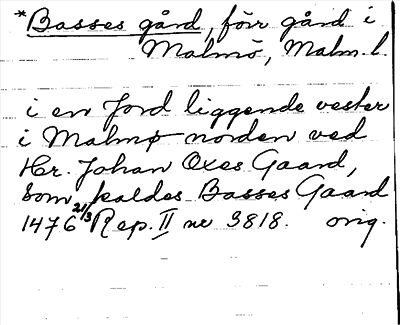 *Basses gård, förr gård i
Malmö, Malm. l.
i en Jord liggende vester
i Malmø norden ved
Hr. Johan Oxes Gaard,
som kaldes Basses Gaard
1476 21/3 Rep. II nr 3818. orig.